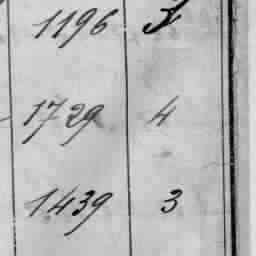 1196 3
1729 4
1439 3